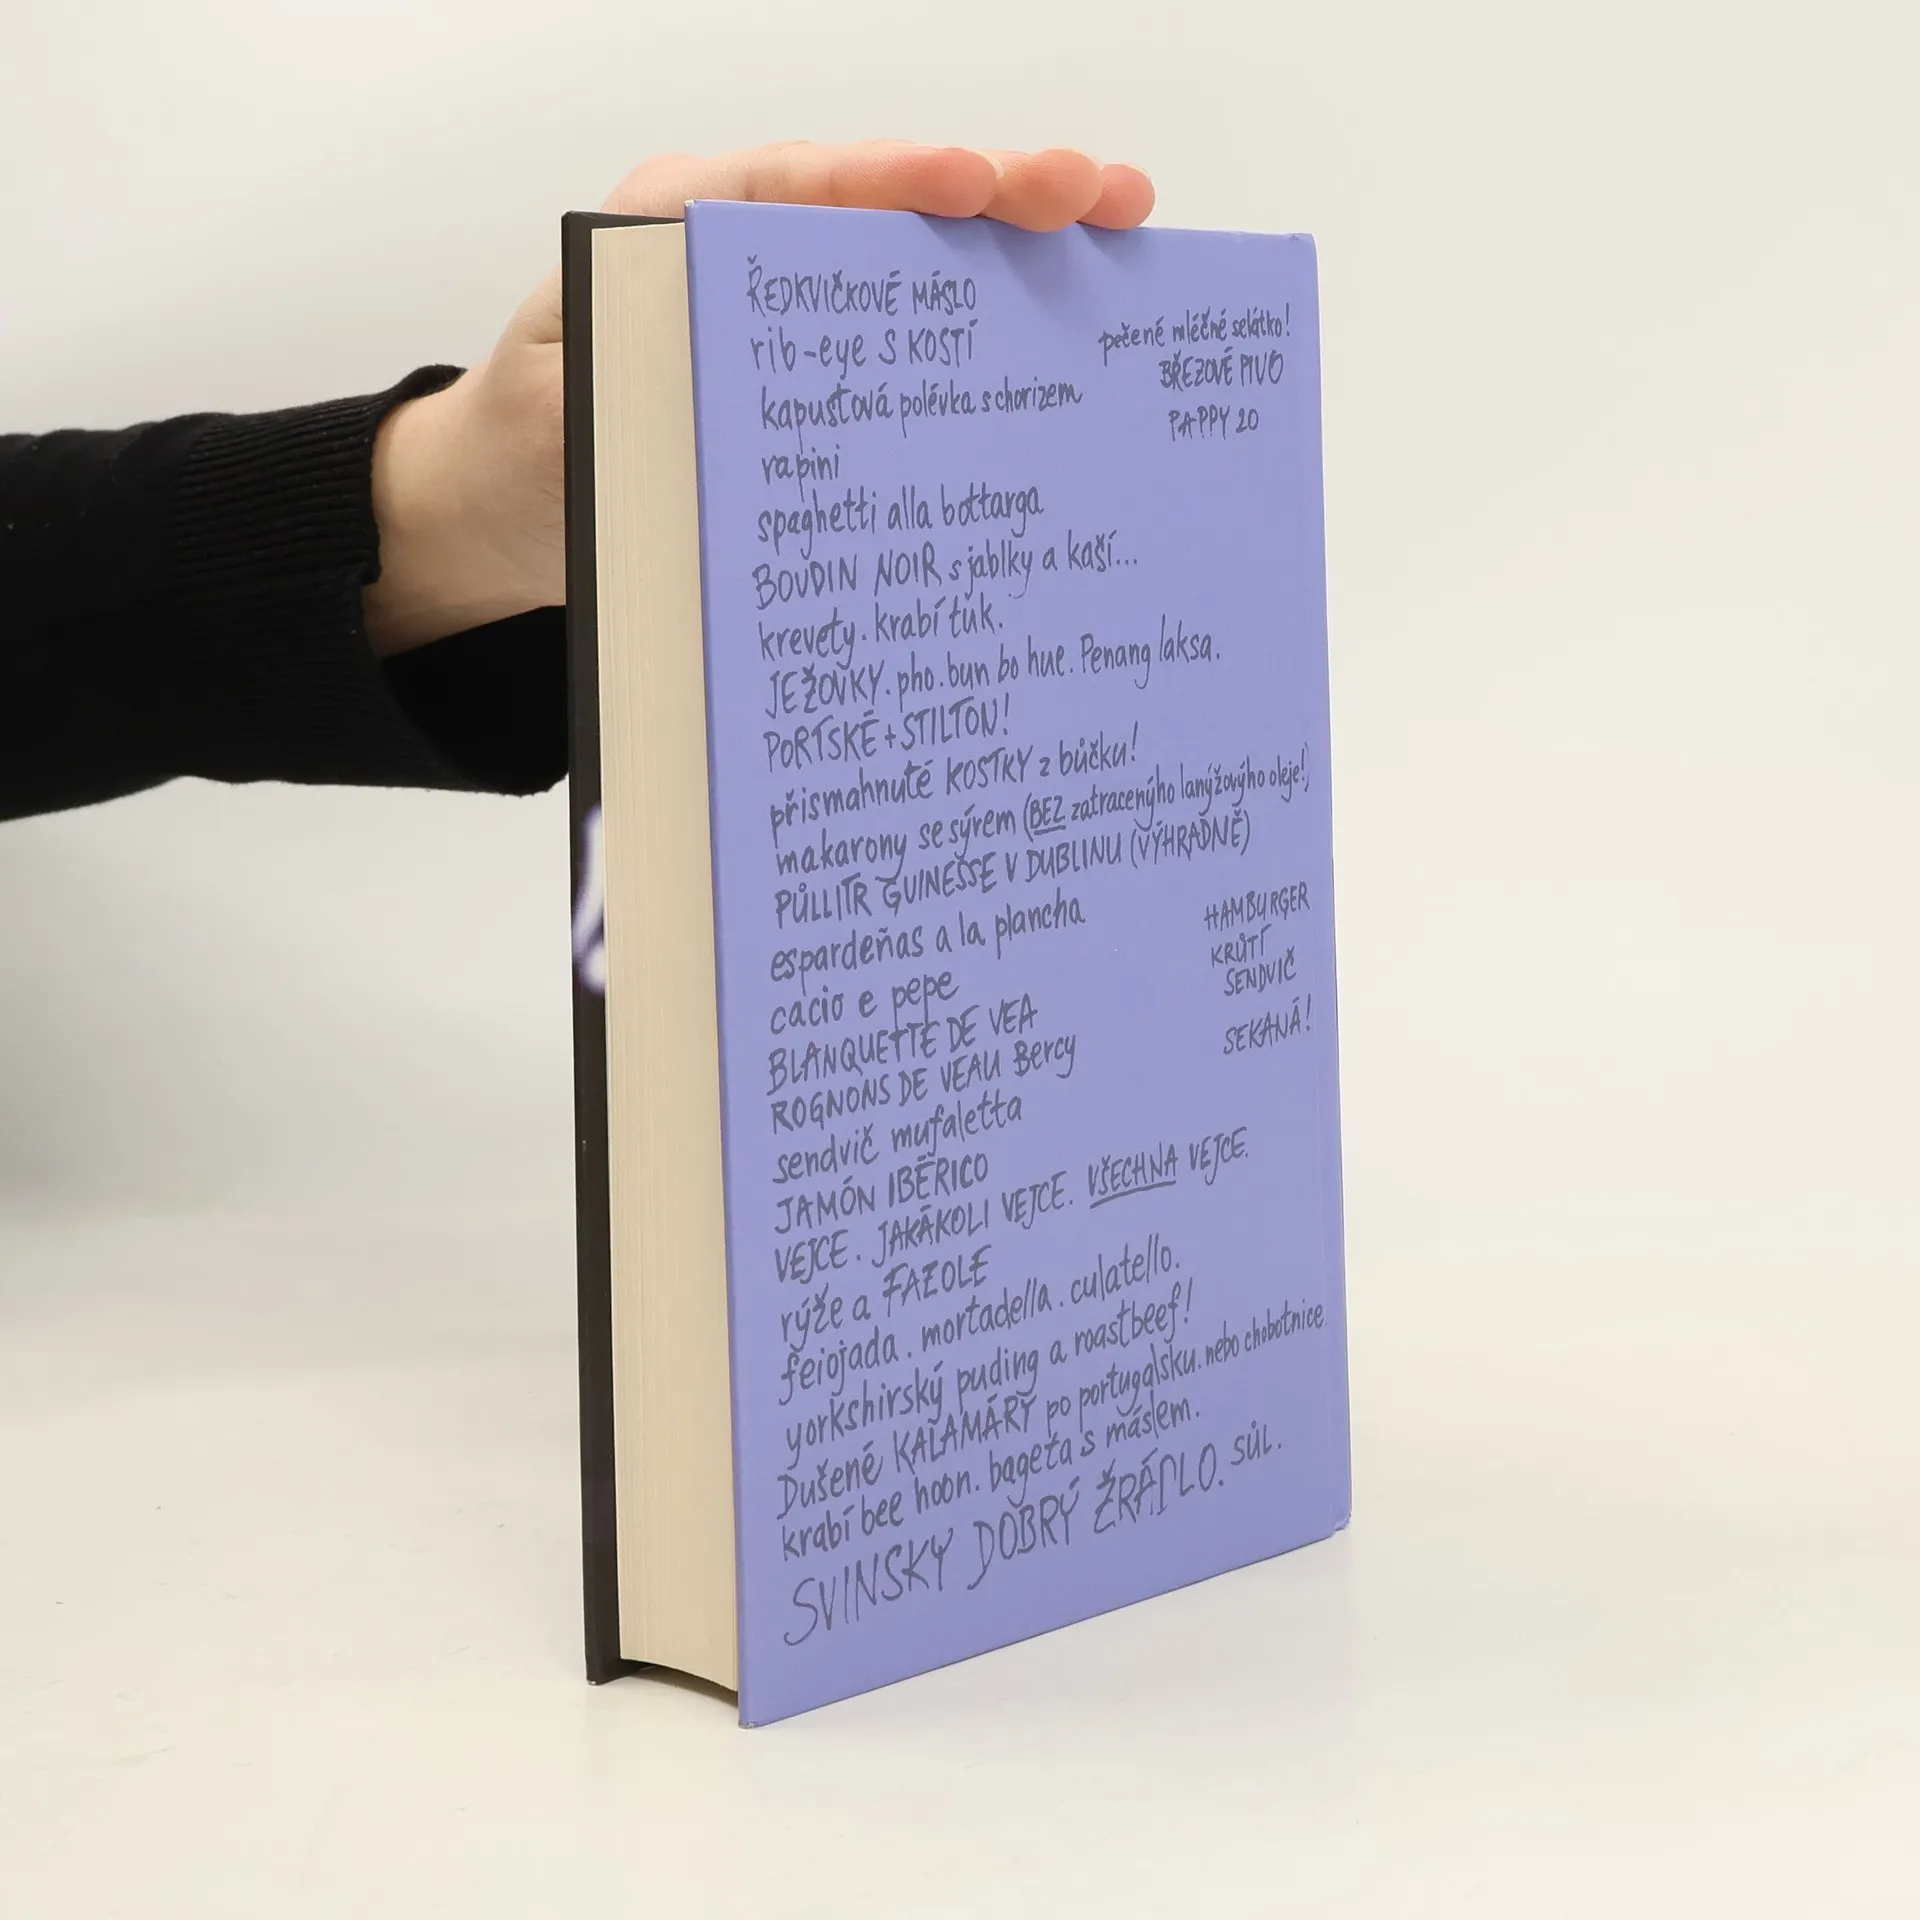 ŘEDKVIČKOVÉ MÁSLO
rib-eye S KOSTÍ
pečené mléčné selátko!
BŘEZOVÉ PIVO
PAPPY 20
kapustová polévka s chorizem
rapini
spaghetti alla bottarga
BOUDIN NOIR s jablky a kaší...
krevety. krabí tuk.
JEŽOVKY. pho. bun bo hue. Penang laksa.
PORTSKÉ + STILTON!
přismahnuté KOSTKY z bůčku!
makarony se sýrem (BEZ zatracenýho lanýžovýho oleje!)
PŮLLITR GUINESSE V DUBLINU (VÝHRADNĚ)
espardeñas a la plancha
HAMBURGER
KRŮTÍ
SENDVIČ
SEKANÁ!
cacio e pepe
BLANQUETTE DE VEA
ROGNONS DE VEAU Bercy
sendvič mufaletta
JAMÓN IBÉRICO
VEJCE. JAKÁKOLI VEJCE. VŠECHNA VEJCE.
rýže a FAZOLE
feiojada. mortadella. culatello.
yorkshirský puding a roastbeef!
Dušené KALAMÁRY po portugalsku. nebo chobotnice.
krabí bee hoon. bageta s máslem.
SVINSKY DOBRÝ ŽRÁDLO. SŮL.